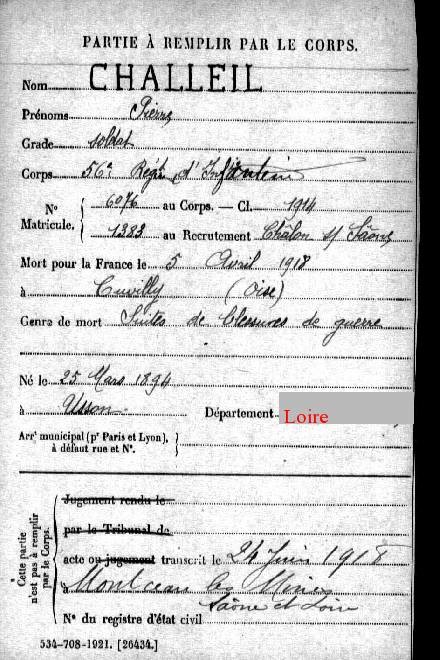 PARTIE À REMPLIR PAR LE CORPS.
Nom CHALLEIL
Prénoms Pierre
Grade soldat
Corps 56e Régt d'Infanterie
N° Matricule. { 6076 au Corps. — Cl. 1914
1383 au Recrutement Châlon s/ Saône
Mort pour la France le 5 Avril 1918
à Cuvilly (Oise)
Genre de mort Suites de blessures de guerre
Né le 25 Mars 1894
à Usson Département Loire
Arrt municipal (pr Paris et Lyon), à défaut rue et N°. }
Cette partie n'est pas à remplir par le Corps. {
Jugement rendu le
par le Tribunal de
acte ou jugement transcrit le 24 Juin 1918
à Montceau les Mines
Saône et Loire
N° du registre d'état civil
534-708-1921. [26434.]